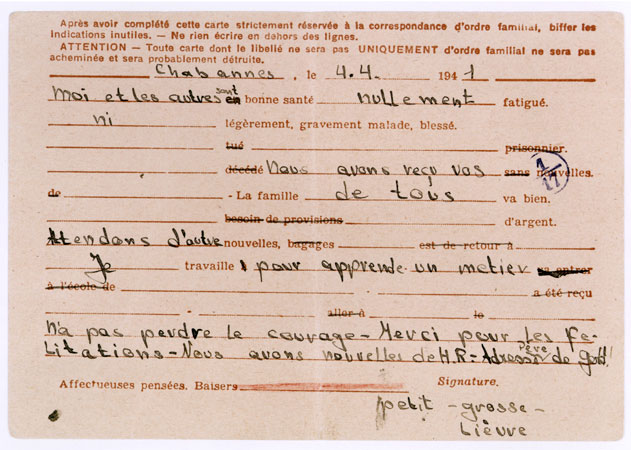 Après avoir complété cette carte strictement réservée à la correspondance d'ordre familial, biffer les
indications inutiles. — Ne rien écrire en dehors des lignes.
ATTENTION — Toute carte dont le libellé ne sera pas UNIQUEMENT d'ordre familial ne sera pas
acheminée et sera probablement détruite.
Chabannes, le 4.4. 1941
Moi et les autres sont en bonne santé nullement fatigué.
ni légèrement, gravement malade, blessé.
tué prisonnier.
décédé Nous avons reçu vos sans nouvelles.
1/17
de - La famille de tous va bien.
besoin de provisions d'argent.
Attendons d'autre nouvelles, bagages est de retour à
Je travaille pour apprende un metier va entrer
à l'école de a été reçu
aller à le
n'a pas perdre le courage - Merci pour les fe-
litations - Nous avons nouvelles de H.R - Adresse père de
Affectueuses pensées. Baisers Signature.
petit - grosse -
Lièvre